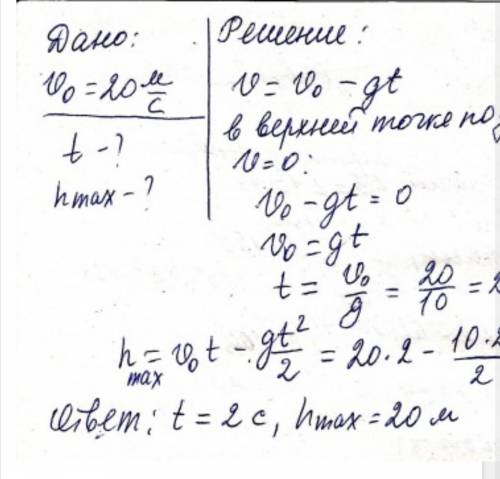 Дано:
v₀ = 20 м/с
t - ?
hmax - ?
Решение:
v = v₀ - gt
в верхней точке
v = 0:
v₀ - gt = 0
v₀ = gt
t = v₀/g = 20/10 =
hmax = v₀t - gt²/2 = 20·2 -
Ответ: t = 2 с, hmax = 20 м